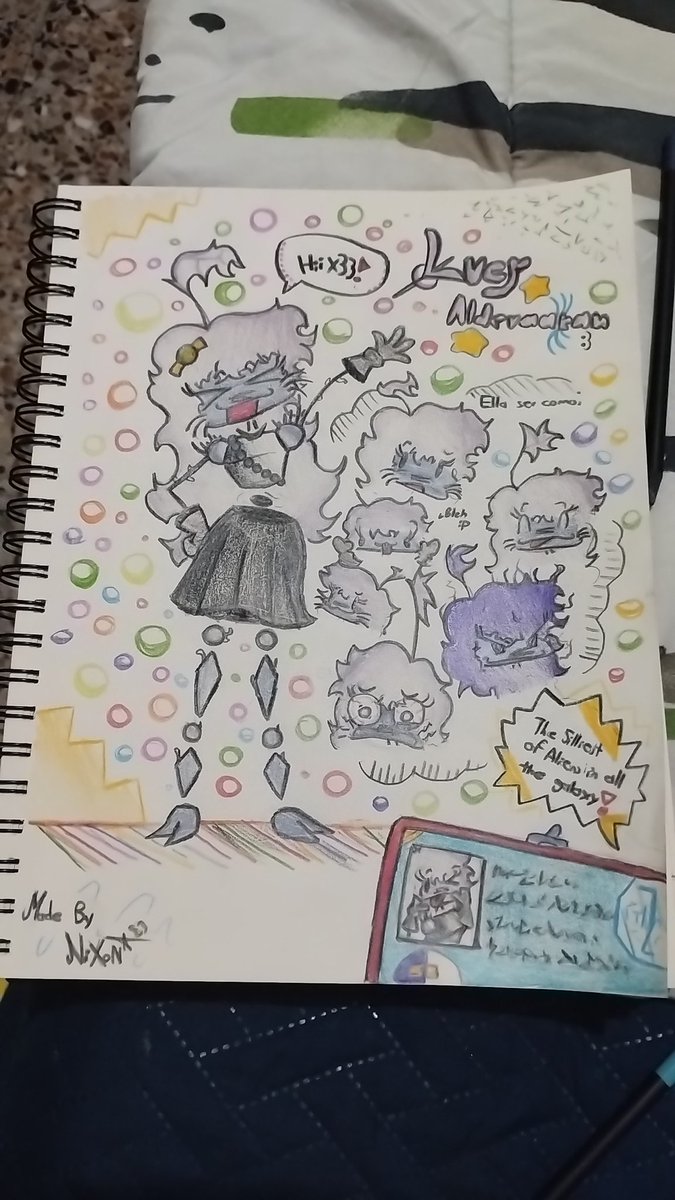 Hii x33!
Lucy
Aldevaaran
:3
Ella ser como:
Bleh
:P
The Silliest
of Aliens in all
the galaxy!
Made By
NiXoN